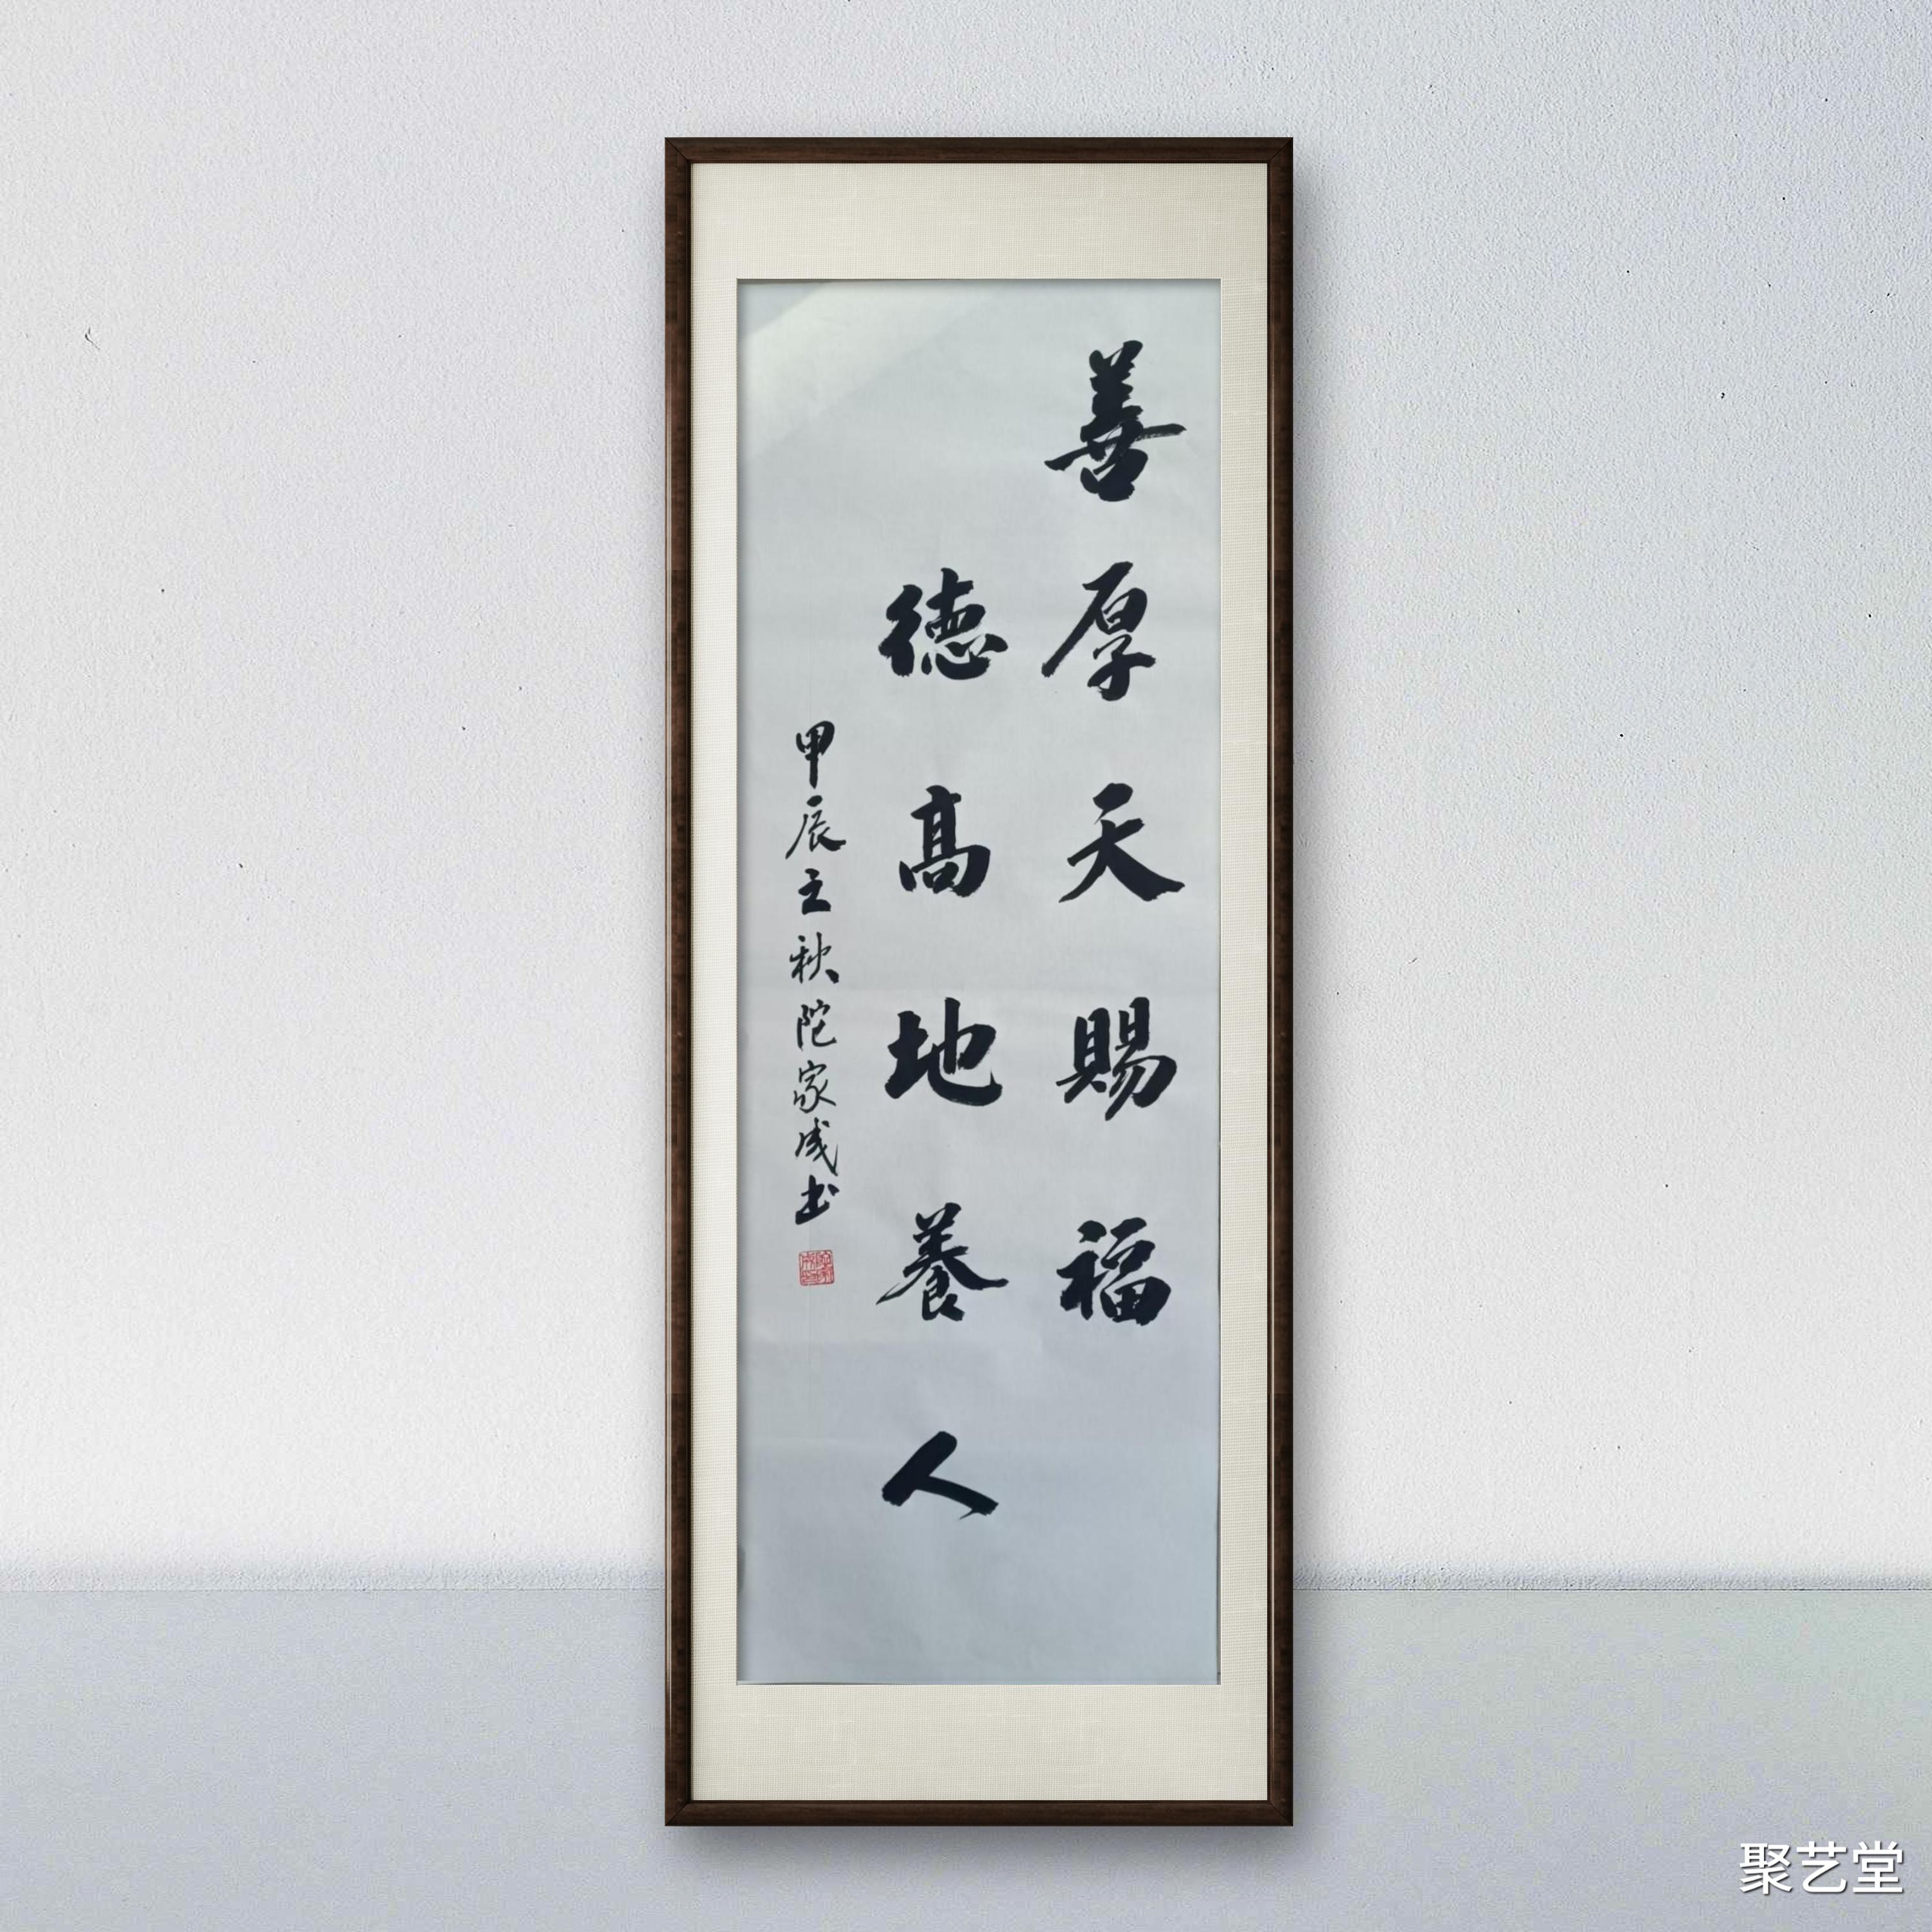 善厚天賜福
德高地養人
甲辰之秋陀家成书
聚艺堂